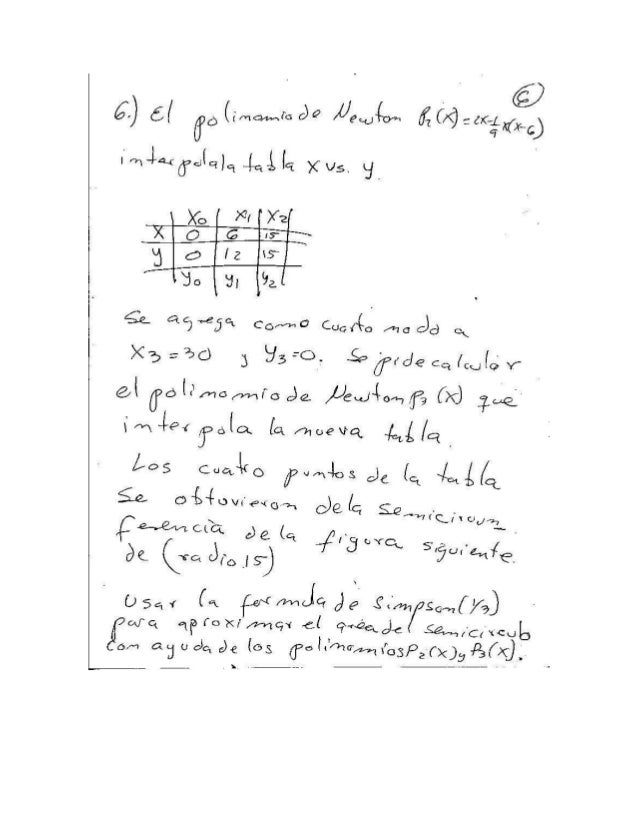 6
6.) El polinomio de Newton P₂(x)=2x-1/9 x(x-6)
interpola la tabla x vs. y.
X₀ X₁ X₂
X 0 6 15
y 0 12 15
y₀ y₁ y₂
Se agrega como cuarto nodo a
X₃=30 y y₃=0. Se pide calcular
el polinomio de Newton P₃(x) que
interpola la nueva tabla.
Los cuatro puntos de la tabla
se obtuvieron de la semicircun
ferencia de la figura siguiente.
de (radio 15)
Usar la formula de Simpson (1/3)
para aproximar el area del semicirculo
con ayuda de los polinomios P₂(x) y P₃(x).